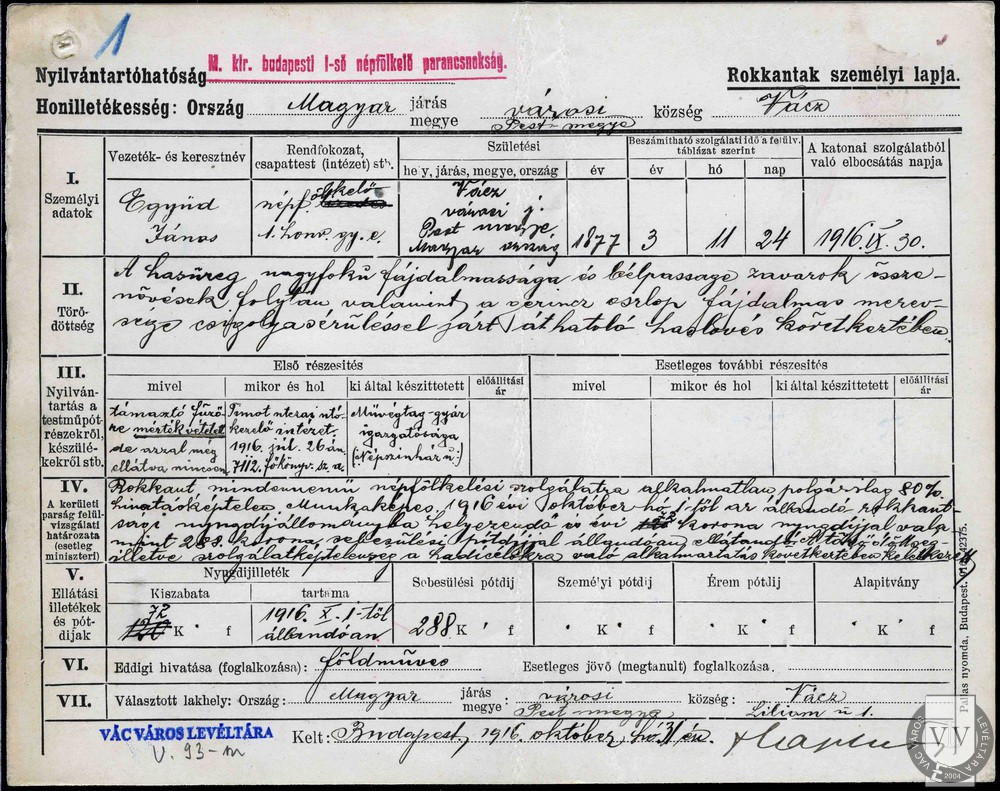 1
Nyilvántartóhatóság M. kir. budapesti I-ső népfölkelő parancsnokság.
Rokkantak személyi lapja.
Honilletékesség: Ország Magyar járás megye városi Pest megye község Vácz
I. Személyi adatok
Vezeték- és keresztnév
Rendfokozat, csapattest (intézet) stb.
Születési
hely, járás, megye, ország
év
Beszámítható szolgálati idő a felülv. táblázat szerint
év
hó
nap
A katonai szolgálatból való elbocsátás napja
Együd János
népfölkelő
1. honv. gy. e.
Vácz
városi j.
Pest megye
Magyar ország
1877
3
11
24
1916. IX. 30.
II. Törődöttség
A hasüreg nagyfokú fájdalmassága és bélpassage zavarok össze-
növések folytán valamint a gerinc oszlop fájdalmas merev-
sége csigolyasérüléssel járt átható haslövés következtében
III. Nyilvántartás a testműpótrészekről, készülékekről stb.
Első részesítés
mivel
mikor és hol
ki által készíttetett
előállítási ár
Esetleges további részesítés
mivel
mikor és hol
ki által készíttetett
előállítási ár
támasztó fűző-
re mérték vétetett
de azzal még
ellátva nincsen
intézet.
1916. júl. 26 án
7112. főkönyv. sz. a.
Művégtag-gyár
igazgatósága
(Népszínház u.)
IV. A kerületi parság felülvizsgálati határozata (esetleg miniszteri)
Rokkant, mindennemű népfölkelési szolgálatra alkalmatlan, polgárilag 80%.
Munkaképes, 1916 évi október hó 1-től az állandó rokkant-
sági nyugdíjállományba helyezendő és évi korona nyugdíjjal vala-
mint 288 korona sebesülési pótdíjjal állandóan ellátandó.
illetve szolgálatképtelenség a hadicélokra való alkalmaztatás következtében keletkezett
V. Ellátási illetékek és pótdíjak
Nyugdíjilleték
Kiszabata
tartama
Sebesülési pótdíj
Személyi pótdíj
Érem pótdíj
Alapitvány
72
120 K f
1916. X. 1-től
állandóan
288 K f
K f
K f
K f
VI. Eddigi hivatása (foglalkozása): földmüves Esetleges jövő (megtanult) foglalkozása.
VII. Választott lakhely: Ország: Magyar járás megye: városi Pest megye község: Vácz Liliom u 1.
VÁC VÁROS LEVÉLTÁRA
V. 93-m
Kelt: Budapest, 1916. október hó 31 én.
Pallas nyomda, Budapest.
VÁC VÁROS LEVÉLTÁRA
VVL
2004